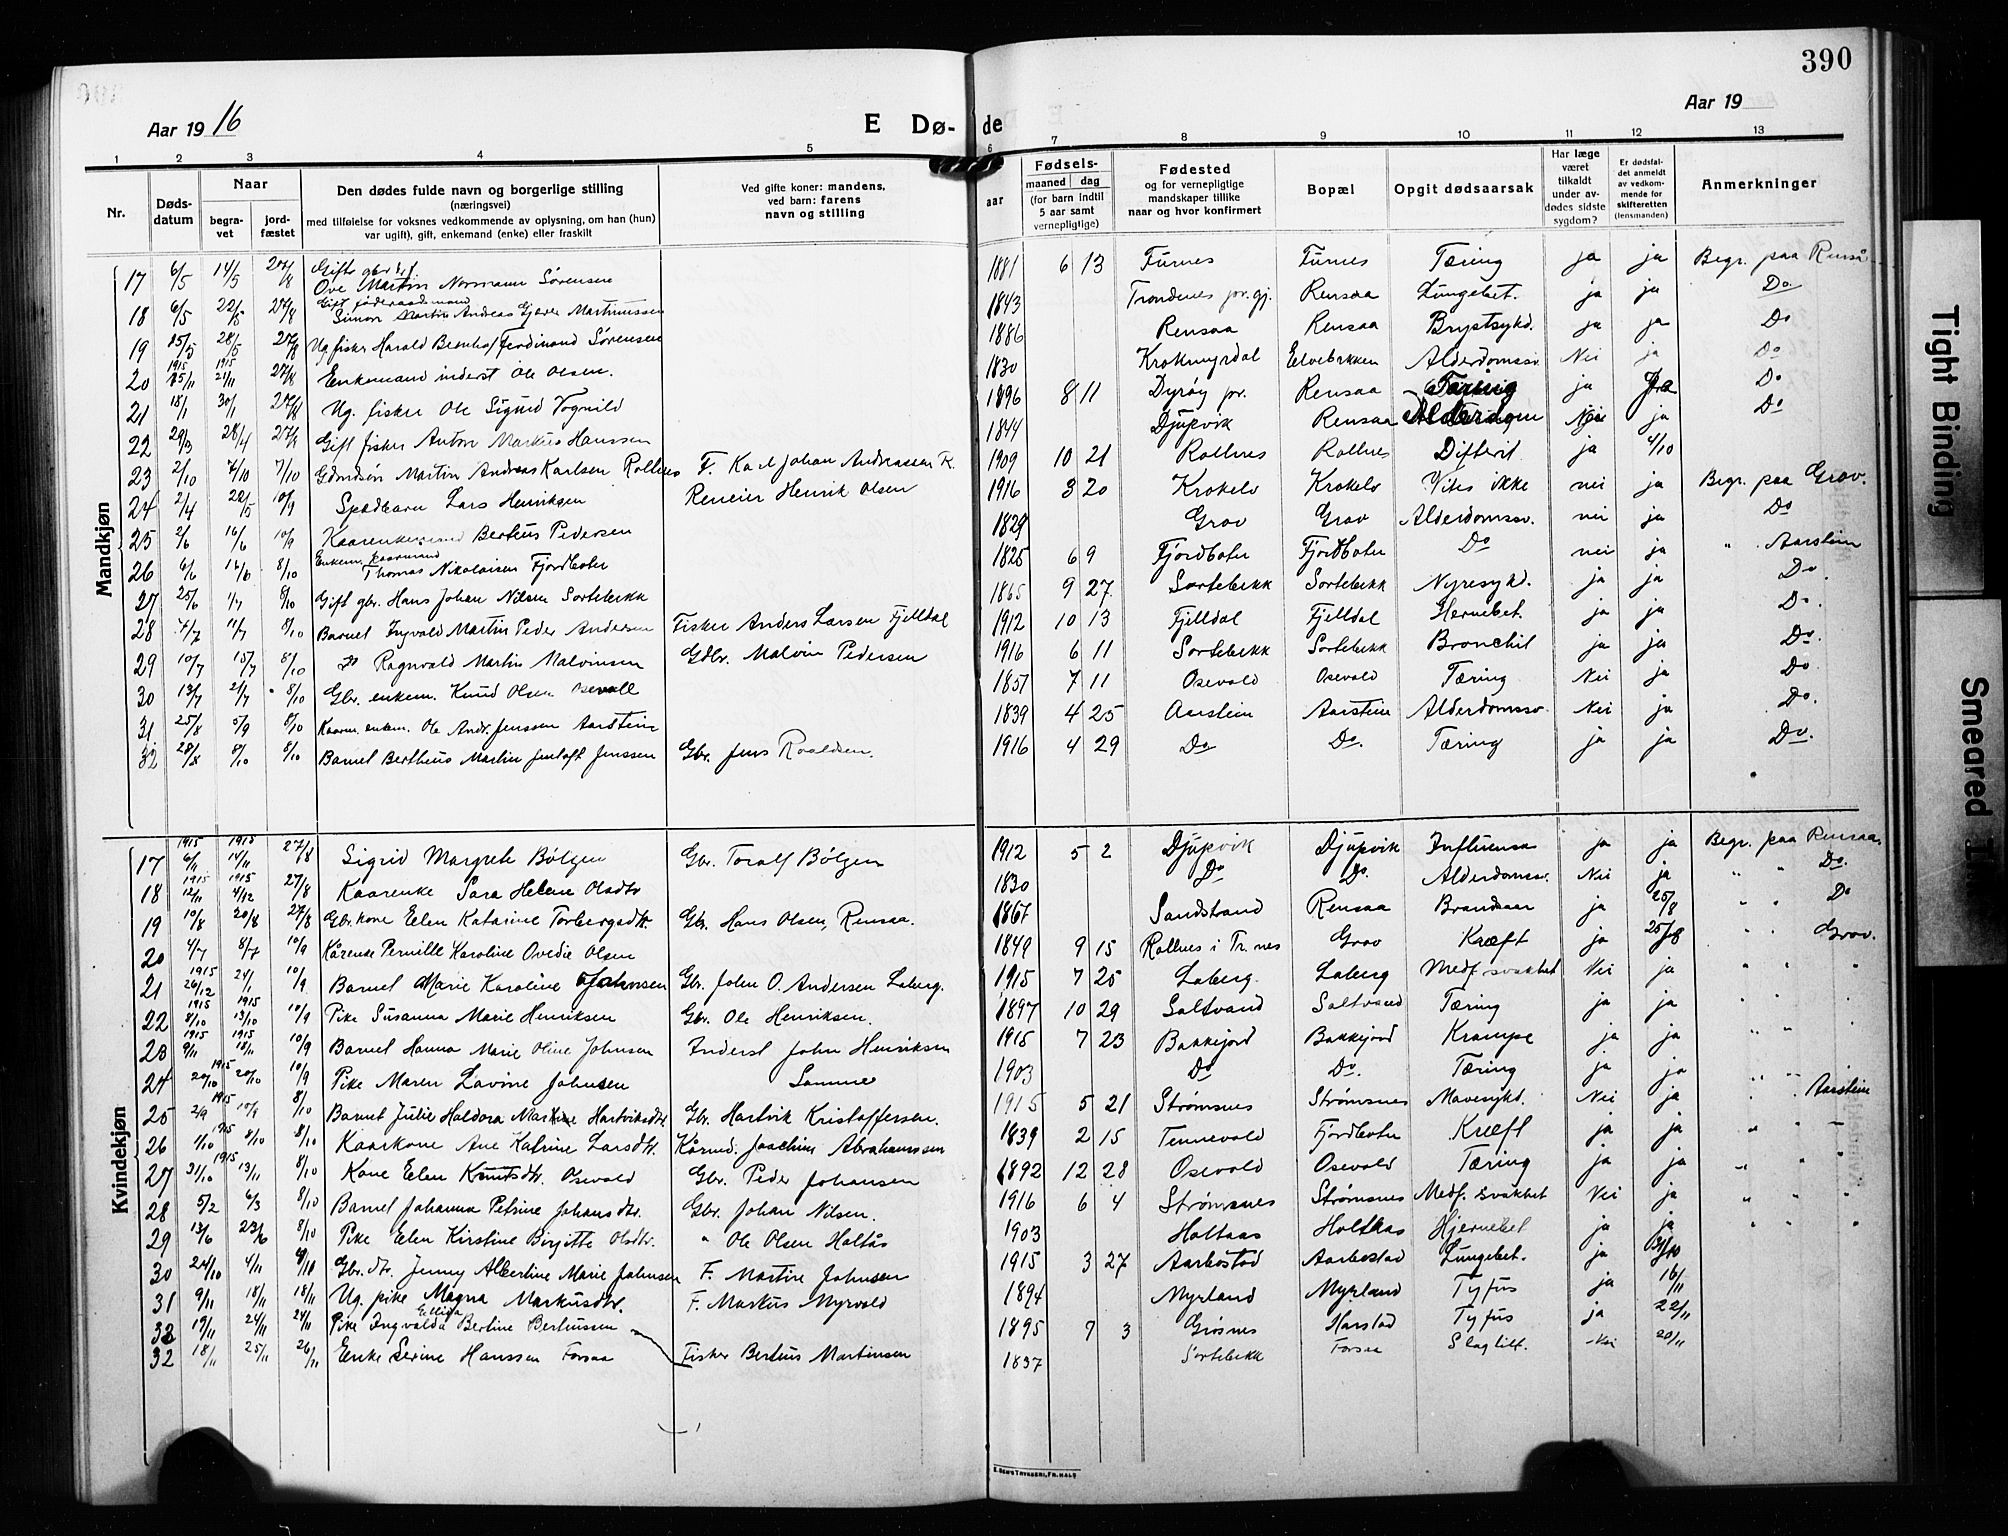 390
Aar 1916
E Dø-de
Aar 19
1 2 3 4 5 6 7 8 9 10 11 12 13
Nr.
Døds-datum
Naar
begra-vet
jord-fæstet
Den dødes fulde navn og borgerlige stilling
(næringsvei)
med tilføielse for voksnes vedkommende av oplysning, om han (hun)
var ugift), gift, enkemand (enke) eller fraskilt
Ved gifte koner: mandens,
ved barn: farens
navn og stilling
aar
Fødsels-
maaned dag
(for barn indtil
5 aar samt
vernepligtige)
Fødested
og for vernepligtige
mandskaper tillike
naar og hvor konfirmert
Bopæl
Opgit dødsaarsak
Har læge
været
tilkaldt
under av-
dødes sidste
sygdom?
Er dødsfal-
det anmeldt
av vedkom-
mende for
skifteretten
(lensmanden)
Anmerkninger
Mandkjøn
17 6/5 14/5 27/8 Gift gbr. Ove Martin Normann Sørensen 1881 6 13 Furnes Furnes Tæring ja ja Begr. paa Renså
18 6/5 22/5 27/8 Gift føderaadsmand Simon Martin Andreas Gjæver Martinussen 1843 Trondenes pr.gj. Rensaa Lungebet. ja ja Do
19 15/5 28/5 27/8 Ug. fisker Harald Bernhof Ferdinand Sørensen 1886 Rensaa Rensaa Brystsykd. ja ja Do
20 1915 15/11 1915 21/11 27/8 Enkemand inderst Ole Olsen. 1830 Krokmyrdal Elvebakken Alderdomssv. Nei ja Do
21 18/1 30/1 27/8 Ug. fisker Ole Sigurd Vognild 1896 8 11 Dyrøy pr. Rensaa Tæring ja Ja Do
22 29/3 28/4 27/8 Gift fisker Anton Markus Hanssen 1844 Djupvik Rensaa Nei ja Do
23 2/10 7/10 7/10 Gdmdsøn Martin Andreas Karlsen Rollnes F. Karl Johan Andreassen R. 1909 10 21 Rollnes Rollnes Difterit ja 4/10
24 2/4 28/5 10/9 Spædbarn Lars Henriksen Reneier Henrik Olsen 1916 3 20 Krokelv Krokelv Vites ikke nei ja Begr. paa Grov.
25 2/6 16/6 10/9 Kaarenkemand Berteus Pedersen 1829 Grov Grov Alderdomssv. nei ja Do
26 6/6 16/6 8/10 Enkem. kaarmand Thomas Nikolaisen Fjordbotn 1825 6 9 Fjordbotn Fjordbotn Do nei ja " Aarstein
27 25/6 1/7 8/10 Gift gbr. Hans Johan Nilsen Sortebekk 1865 9 27 Sortebekk Sortebekk Nyresykd. ja ja Do.
28 4/7 11/7 8/10 Barnet Ingvald Martin Peder Andersen Fisker Anders Larsen Fjelldal 1912 10 13 Fjelldal Fjelldal Hernebet. ja ja Do.
29 10/7 15/7 8/10 Do Ragnvald Martin Malvinsen Gbr. Malvin Pedersen 1916 6 11 Sortebekk Sortebekk Bronchit ja ja Do.
30 13/7 21/7 8/10 Gbr. enkem. Knud Olsen Osevoll 1857 7 11 Osevold Osevold Tæring Nei ja Do
31. 25/8 5/9 8/10 Kaarm. enkem. Ole Andr. Jenssen Aarstein 1839 4 25 Aarstein Aarstein Alderdomssv. Nei ja Do.
32 28/8 8/10 8/10 Barnet Bertheus Martin Jentoft Jenssen Gbr. Jens Roaldsen. 1916 4 29 Do Do. Tæring ja ja Do.
Kvindekjøn
17 1915 6/11 1915 14/11 27/8 Sigrid Margrete Bølgen Gbr. Toralf Bølgen 1912 5 2 Djupvik Djupvik Influensa ja ja Begr. paa Rensaa
18 1915 12/11 1915 4/12 27/8 Kaarenke Sara Helene Olsdtr 1830 Do Do. Alderdomssv. Nei ja " " Do.
19 10/8 20/8 27/8 Gbr.kone Elen Katarine Torbergsdtr. Gbr. Hans Olsen, Rensaa. 1867 Sandstrand Rensaa Brandsaar ja 25/8 " " Do
20 4/7 8/7 10/9 Kårenke Pernille Karoline Ovedie Olsen 1849 9 15 Rollnes i Tr.nes Grov Kræft ja 25/8 " " Grov.
21 1915 26/12 24/1 10/9 Barnet Marie Karoline Johansen Gbr. John O. Andersen Laberg. 1915 7 25 Laberg. Laberg Medf. svakhet Nei ja " " "
22 1915 8/10 1915 13/10 10/9 Pike Susanna Marie Henriksen Gbr. Ole Henriksen. 1897 10 29 Saltvand Saltvand Tæring ja ja " " "
23 1915 9/11 1915 18/11 10/9 Barnet Hanna Marie Oline Johnsen Inderst John Henriksen 1915 7 23 Bakkejord Bakkejord Krampe ja ja " " "
24 1915 20/10 20/10 10/9 Pike Maren Lavine Johnsen Samme 1903 Do Do. Tæring ja ja " " "
25 1915 2/9 10/9 8/10 Barnet Julie Haldora Martine Hartviksdtr Gbr. Hartvik Kristoffersen. 1915 5 21 Strømsnes Strømsnes Mavesykd. Nei ja " Aarstein
26 1915 1/10 8/10 8/10 Kaarkone Ane Katrine Larsdtr. Kårmd. Joachim Abrahamssen 1839 2 15 Tennevold Fjordbotn Kræft ja ja " "
27 1915 31/10 13/11 8/10 Kone Elen Knutsdtr. Osevold Gbr. Peder Johansen 1892 12 28 Osevold Osevold Tæring ja ja " " "
28 5/2 6/3 8/10 Barnet Johanna Petrine Johansdtr. Gbr. Johan Nilsen. 1916 6 4 Strømsnes Strømsnes Medf. svakhet Nei ja " " "
29 13/6 23/6 8/10 Pike Elen Kirstine Birgitte Olsdtr. " Ole Olsen Holtås 1903 Holtaas Holtkas Hjernebet ja ja " " "
30 24/10 4/11 Gbr. dtr. Jenny Albertine Marie Johnsen F. Martin Johnsen 1915 3 27 Aarbostad Aarbostad Lungebet. ja 31/10
31 9/11 18/11 18/11 Ug. pike Magna Markusdtr. F. Markus Myrvold 1894 Myrland Myrland Tyfus ja 16/11
32 19/11 24/11 24/11 Pike Ingvalda Ellida Bertine Berteussen 1895 7 3 Grøsnes Harstad Tyfus ja 22/11
32 18/11 25/11 26/11 Enke Serine Hanssen Forsaa Fisker Berteus Martinsen 1837 Sortebekk Forsaa Slagtilf. Nei 20/11
E. SEM'S TRYKKERI, FR.HALD
Tight Binding
Smeared